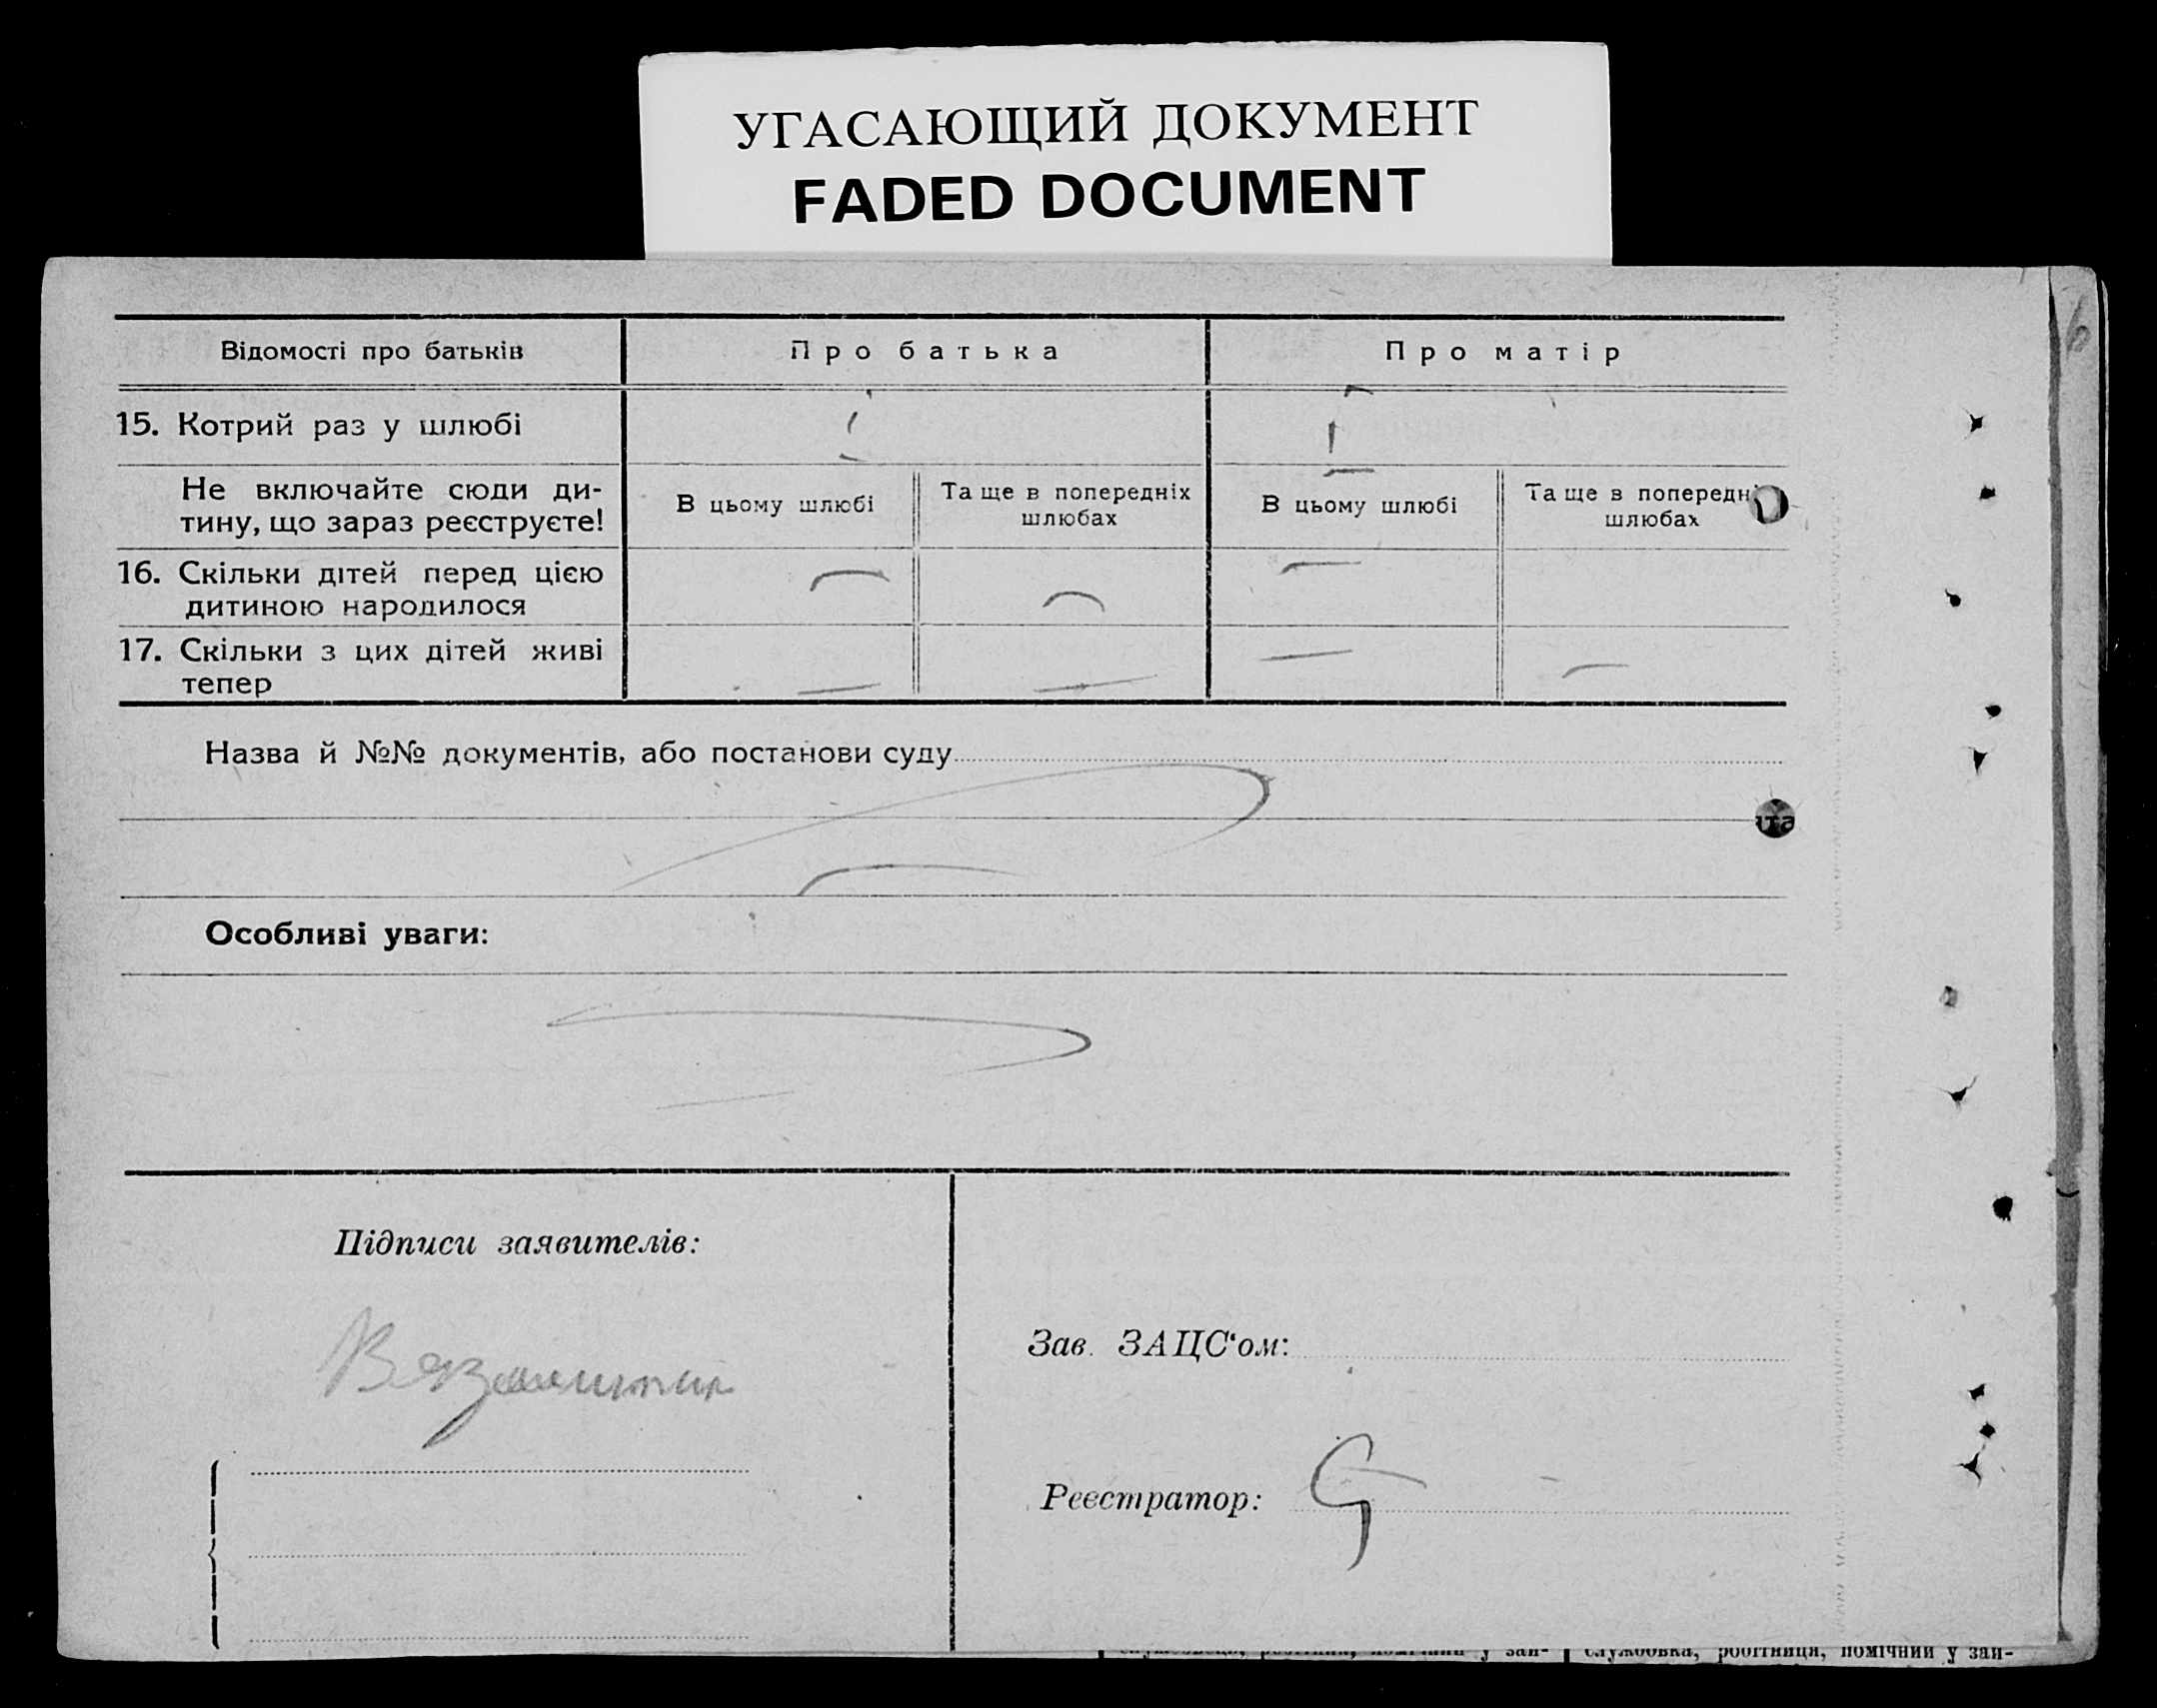 УГАСАЮЩИЙ ДОКУМЕНТ
FADED DOCUMENT
6
Відомості про батьків
Про батька
Про матір
15. Котрий раз у шлюбі
I
I
Не включайте сюди ди-
тину, що зараз реєструєте!
В цьому шлюбі
Та ще в попередніх
шлюбах
В цьому шлюбі
Та ще в попередн
шлюбах
16. Скільки дітей перед цією
дитиною народилося
—
—
—
17. Скільки з цих дітей живі
тепер
—
—
—
—
Назва й №№ документів, або постанови суду
та
Особливі уваги:
Підписи заявителів:
Зав. ЗАЦС‘ом:
Реєстратор:
службовка, робітниця, помічний у зан-